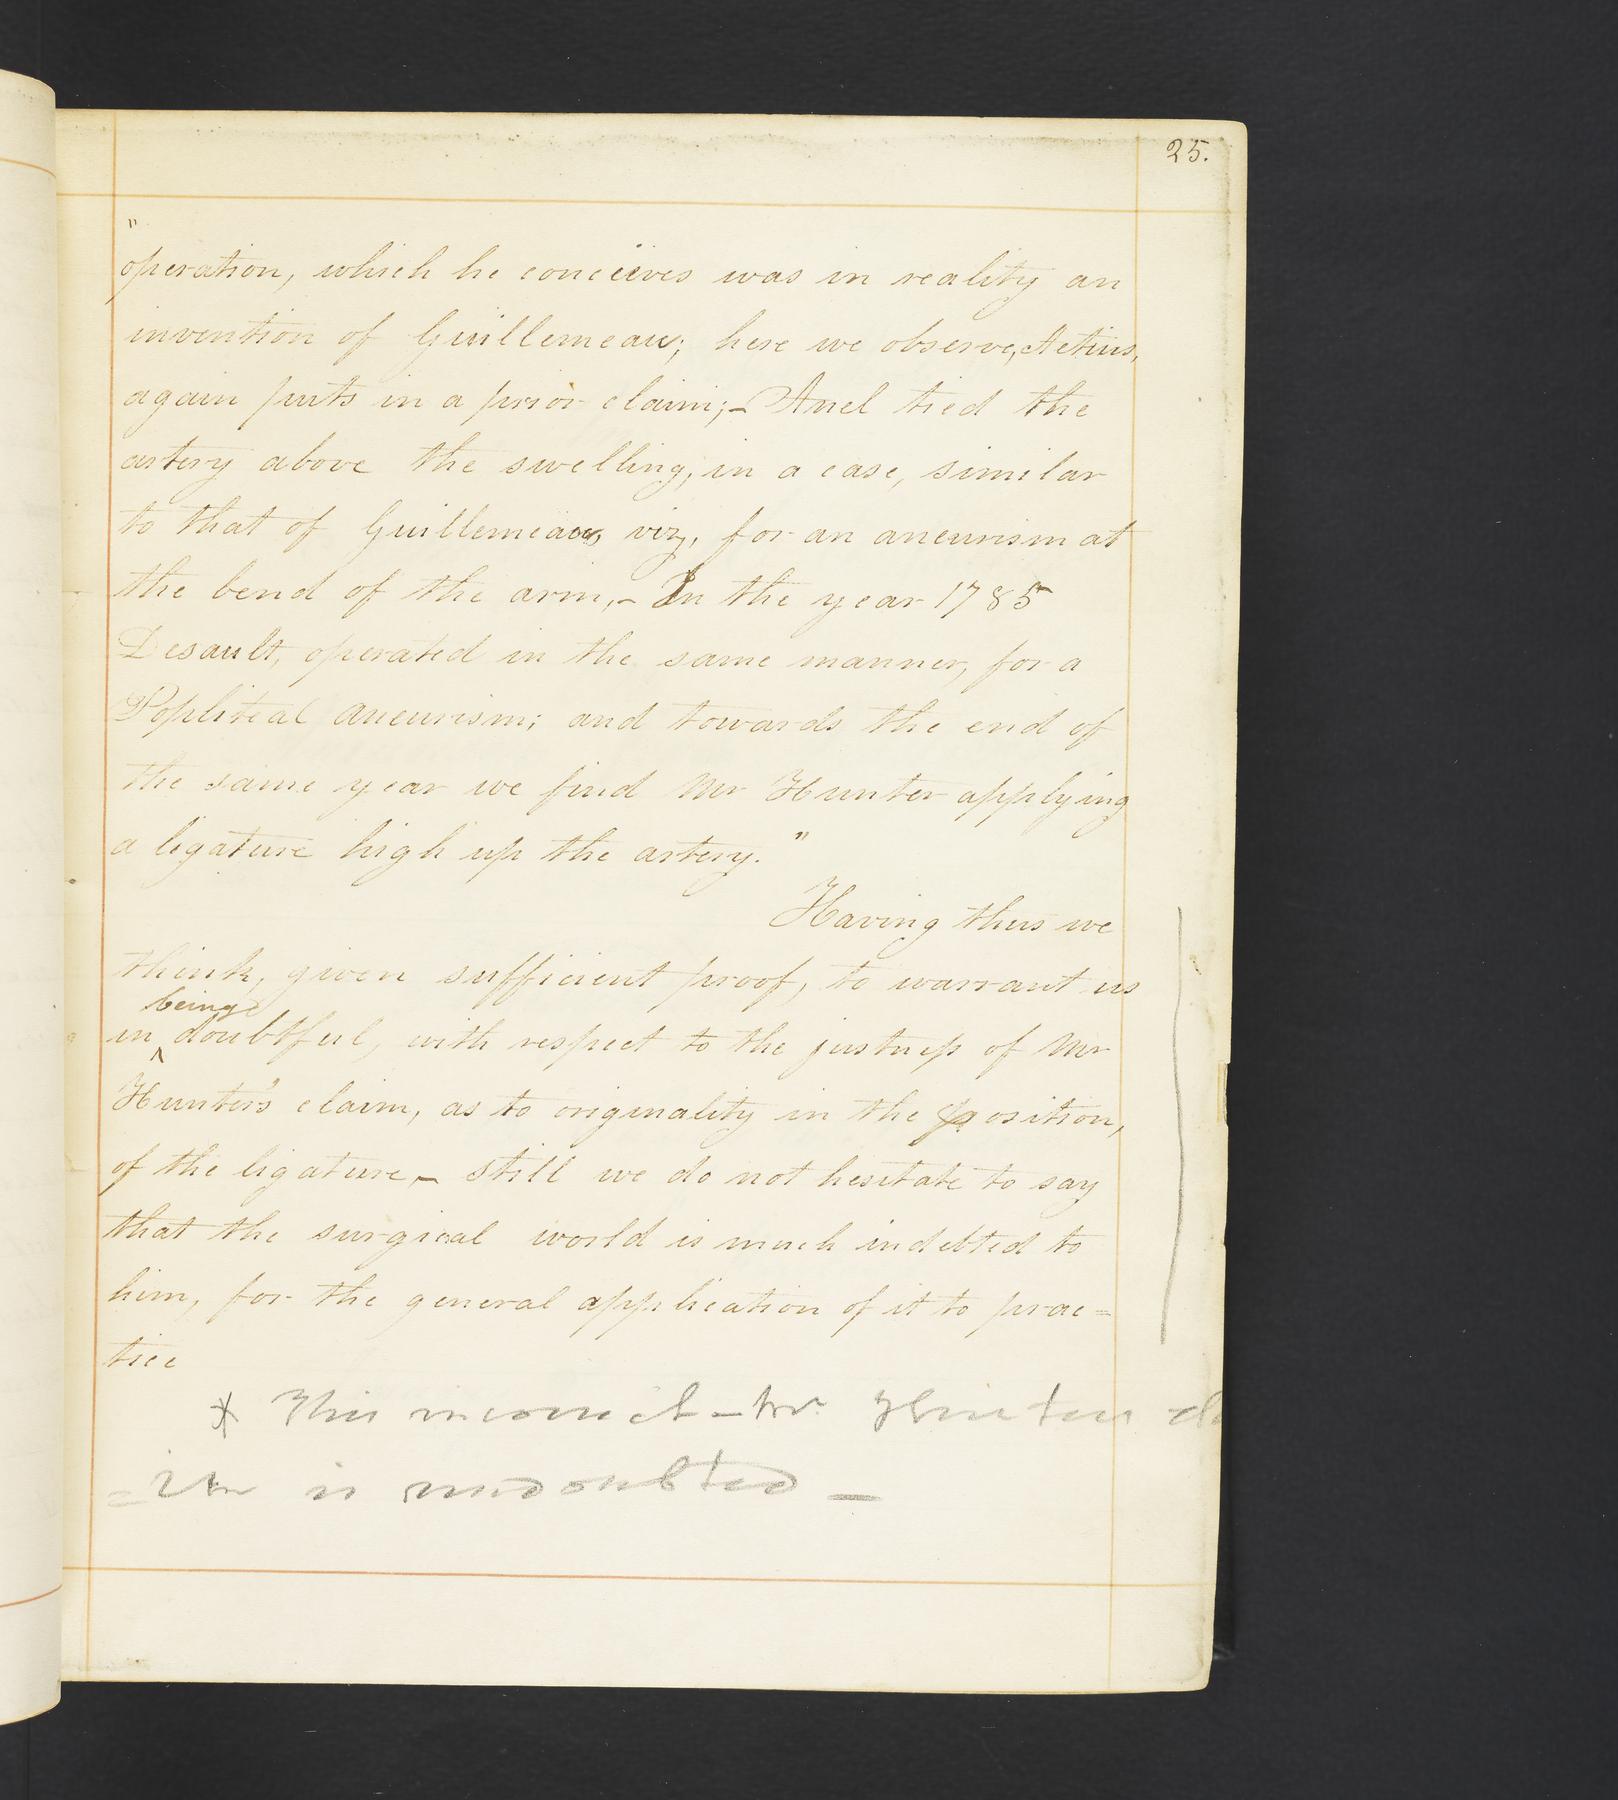 25.
"
operation, which he conceives was in reality an
invention of Guillemeau; here we observe, Aetius,
again puts in a prior claim;– Anel tied the
artery above the swelling, in a case, similar
to that of Guillemeau, viz, for an aneurism at
the bend of the arm,– In the year 1785
Desault, operated in the same manner, for a
Popliteal aneurism; and towards the end of
the same year we find Mr Hunter applying
a ligature high up the artery."
Having thus we
think, given sufficient proof, to warrant us
being
in ^ doubtful, with respect to the justness of Mr
Hunter's claim, as to originality in the position,
of the ligature,– still we do not hesitate to say
that the surgical world is much indebted to
him, for the general application of it to prac=
tice
* This incorrect – Mr. Hunters
is undoubted –